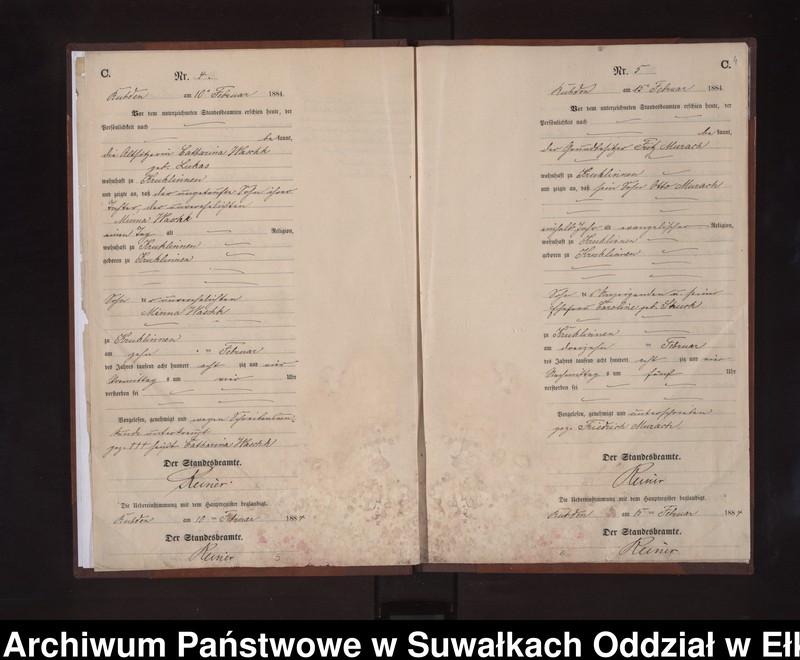 C.
Nr. 4.
Kubden am 10ten Februar 1884.
Vor dem unterzeichneten Standesbeamten erschien heute, der
Persönlichkeit nach
be kannt,
die Altsitzerin Catharina Waschk
geb. Lukas
wohnhaft zu Kruklinnen
und zeigte an, daß der ungetaufte Sohn ihrer
Tochter, der unverehelichten
Minna Waschk
einen Tag alt Religion,
wohnhaft zu Kruklinnen
geboren zu Kruklinnen
Sohn der unverehelichten
Minna Waschk
zu Kruklinnen
am zehnten Februar
des Jahres tausend acht hundert achtzig und vier
Vormittags um vier Uhr
verstorben sei
Vorgelesen, genehmigt und wegen Schreibensun-
kunde unterkreuzt
gez. ††† Catharina Waschk
Der Standesbeamte.
Reiner
Die Uebereinstimmung mit dem Hauptregister beglaubigt.
Kubden am 10ten Februar 1884
Der Standesbeamte.
Reiner
C.
Nr. 5
Kubden am 15ten Februar 1884.
Vor dem unterzeichneten Standesbeamten erschien heute, der
Persönlichkeit nach
be kannt,
der Grundbesitzer Fritz Murach
wohnhaft zu Kruklinnen
und zeigte an, daß sein Sohn Otto Murach
einhalb Jahr alt evangelischer Religion,
wohnhaft zu Kruklinnen
geboren zu Kruklinnen
Sohn des Anzeigenden u. seiner
Ehefrau Caroline geb.
zu Kruklinnen
am dreizehnten Februar
des Jahres tausend acht hundert achtzig und vier
Nachmittags um fünf Uhr
verstorben sei
Vorgelesen, genehmigt und unterschrieben
gez. Friedrich Murach
Der Standesbeamte.
Reiner
Die Uebereinstimmung mit dem Hauptregister beglaubigt.
Kubden am 15ten Februar 1884
Der Standesbeamte.
Reiner
Archiwum Państwowe w Suwałkach Oddział w Eł